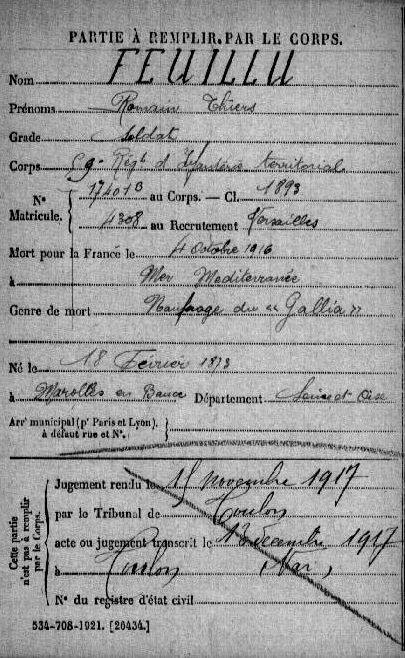 PARTIE À REMPLIR PAR LE CORPS.
Nom FEUILLU
Prénoms Romain Thiers
Grade Soldat
Corps 59e Régt d'Infanterie territorial
N° Matricule. { 17401B au Corps. — Cl. 1893
4308 au Recrutement Versailles
Mort pour la France le 4 Octobre 1916
à Mer Mediterranée
Genre de mort Naufrage du "Gallia"
Né le 18 Février 1873
à Marolles en Département Seine et Oise
Arrt municipal (pr Paris et Lyon), à défaut rue et N°. }
Cette partie n'est pas à remplir par le Corps.
Jugement rendu le 15 novembre 1917
par le Tribunal de Toulon
acte ou jugement transcrit le décembre 1917
à Toulon Var
N° du registre d'état civil
534-708-1921. [26434.]